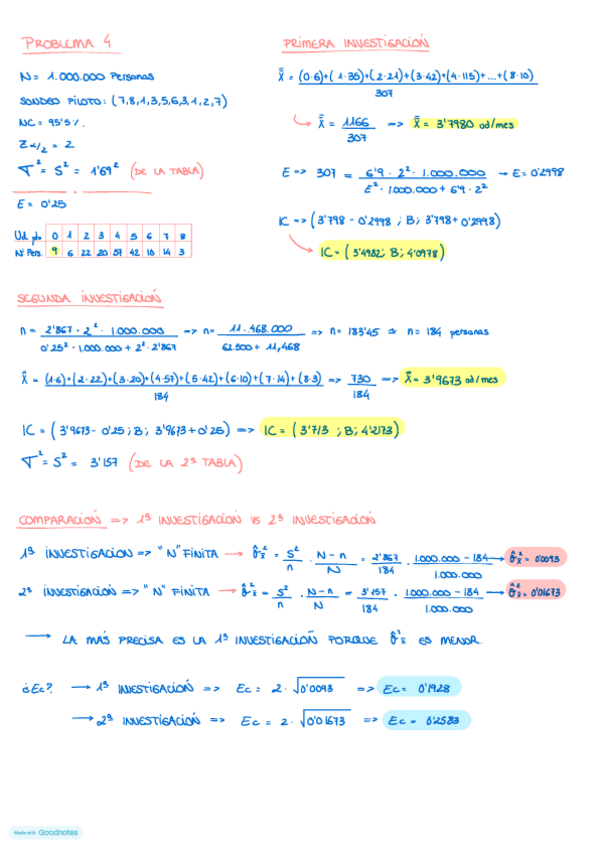 PROBLEMA 4
N = 1.000.000 Personas
SONDEO PILOTO: (7,8,1,3,5,6,3,1,2,7)
NC = 95'5%.
Zα/2 = 2
σ² = S² = 1'69² (DE LA TABLA)
E = 0'25
Ud. pb 0 1 2 3 4 5 6 7 8
Nº Pers. 9 6 22 20 57 42 10 14 3
PRIMERA INVESTIGACIÓN
x̄ = (0·6)+(1·35)+(2·21)+(3·42)+(4·115)+...+(8·10) / 307
x̄ = 1166 / 307 => x̄ = 3'7980 ud/mes
E => 307 = 6'9 · 2² · 1.000.000 / E² · 1.000.000 + 6'9 · 2² → E = 0'2998
IC => (3'798 - 0'2998 ; B; 3'798 + 0'2998)
IC = (3'4982; B; 4'0978)
SEGUNDA INVESTIGACIÓN
n = 2'867 · 2² · 1.000.000 / 0'25² · 1.000.000 + 2² · 2'867 => n = 11.468.000 / 62.500 + 11,468 => n = 183'45 ≈ n = 184 personas
x̄ = (1·6)+(2·22)+(3·20)+(4·57)+(5·42)+(6·10)+(7·14)+(8·3) / 184 => 730 / 184 => x̄ = 3'9673 ud/mes
IC = (3'9673 - 0'25; B; 3'9673 + 0'25) => IC = (3'713 ; B; 4'2173)
σ² = S² = 3'157 (DE LA 2ª TABLA)
COMPARACIÓN => 1ª INVESTIGACIÓN VS 2ª INVESTIGACIÓN
1ª INVESTIGACIÓN => "N" FINITA → σ̂²x̄ = S²/n · N-n/N = 2'867/184 · 1.000.000 - 184/1.000.000 → σ̂²x̄ = 0'0093
2ª INVESTIGACIÓN => "N" FINITA → σ̂²x̄ = S²/n · N-n/N = 3'157/184 · 1.000.000 - 184/1.000.000 → σ̂²x̄ = 0'01673
→ LA MÁS PRECISA ES LA 1ª INVESTIGACIÓN PORQUE σ̂²x̄ ES MENOR.
¿Ec? → 1ª INVESTIGACIÓN => Ec = 2 · √0'0093 => Ec = 0'1928
→ 2ª INVESTIGACIÓN => Ec = 2 · √0'01673 => Ec = 0'2583
Made with Goodnotes